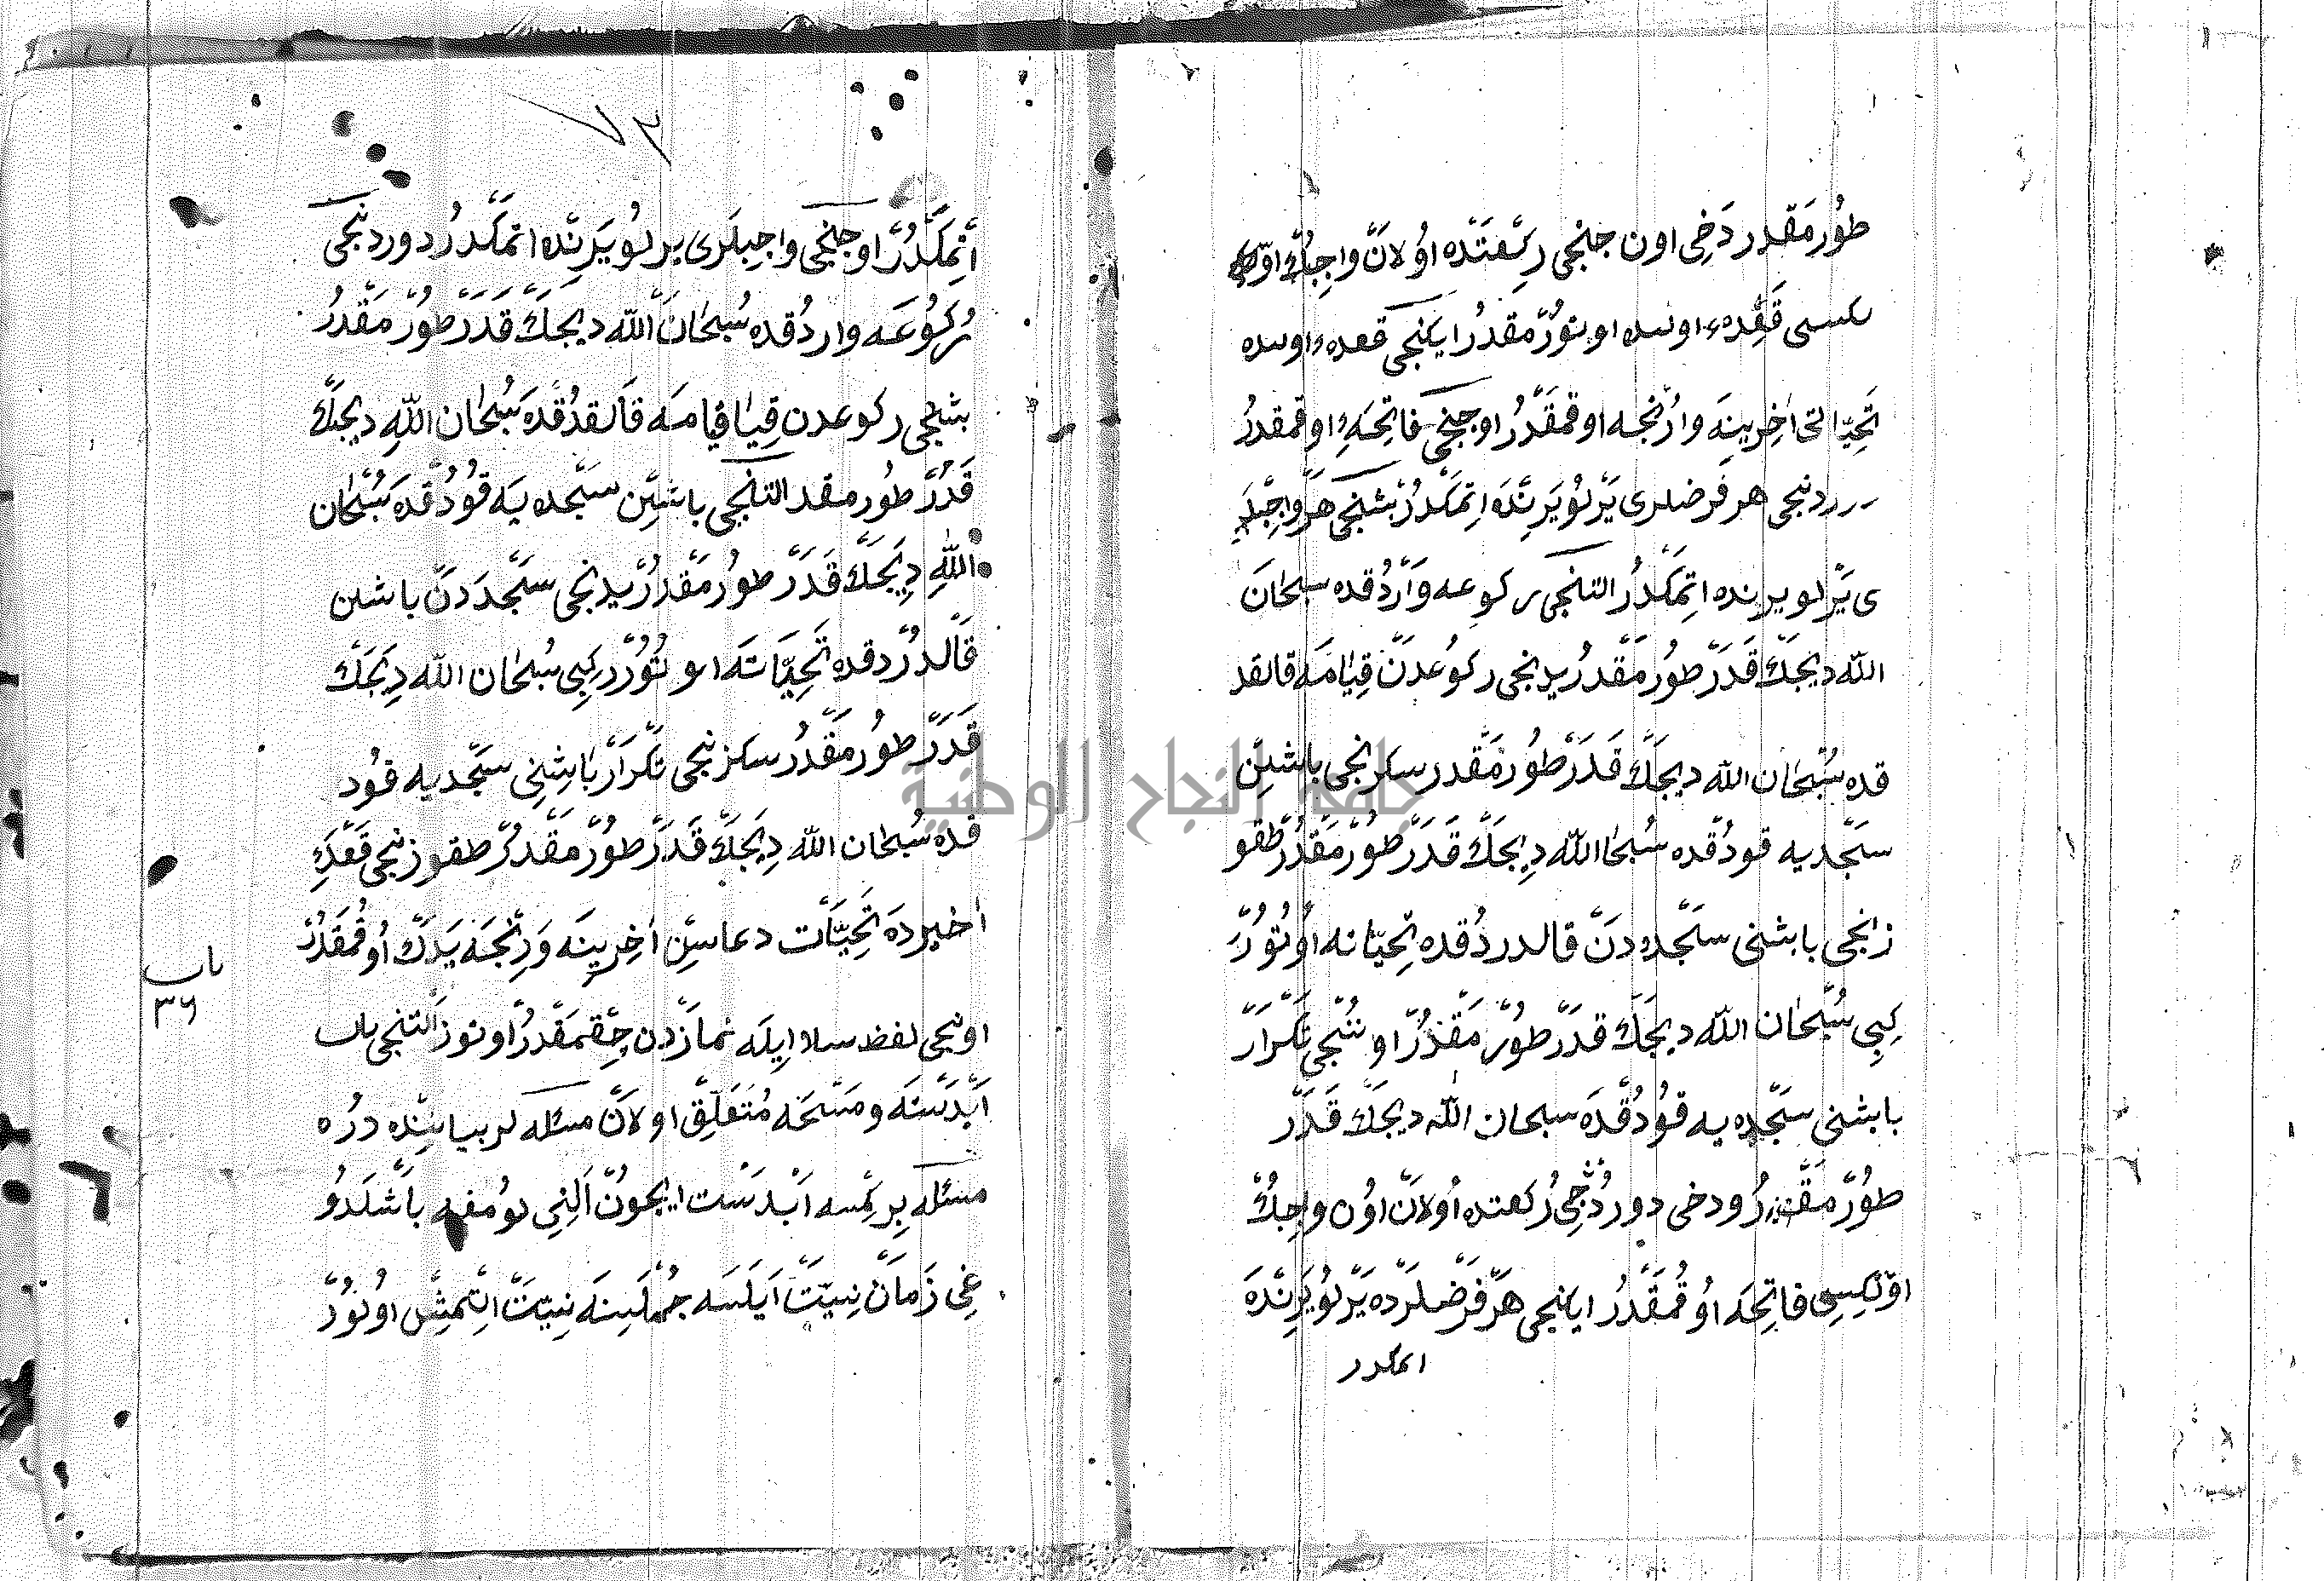 طُورمَقدر دَخِى اون جنجى رَكعَتدَه اوُلانَّ واجِبُكْ اوّل
كسى قَعْدهء اوسده اوتوُرّمَقدُر ايكنجى قعدهء اوسده
تَحِيّاتى اٰخِرينِهَ وارُنجه اوقمقَدّرُ اوجنجى فاتِحَهِءْ اوقمقدرُ
دردنجى هر فَرضلرى يَرْلوُيَرِنَدَه اِتمَكْدرُ بشنجى هَرّ واجِبْلَرِ
ى يَرْلو يرنده اتمَكدُر التنجى ركوعه وَارّدُقده سبحٰانَ
الله ديجَكْ قَدَرّ طوُر مَقَدرُ يدنجى ركوُعدَنّ قِيٰامَه قالقد
قده سُبْحٰان الله ديجَكْ قَدَرْ طوُرْمَقدر سكزنجى باشِيّن
سَجّديه قودُقده سُبحٰا الله دِيجَكْ قَدَرّ طوُرّمَقدُرّ طقو
زنجى باشنى سَجْده دَنّ قالدردُقده تحيّاته اوُتوُرّ
كِبِى سُبْحٰان الله ديجَكْ قدَرّ طوُرّ مَقدُرّ اوننُجى تَكرَارّ
باشنى سَجّده يه قوُدُقدَه سبحان الله ديجَكْ قَدَرّ
طوُرّ مقَدرُ ودخى دوردُنجى رُكعتده اوُلانّ اوُن واجبُكْ
اوّلكِسِى فاتِحَه اوُقمَقدُر ايكنجى هَرّ فَرّضلَرّده يَرّلوُ يَرِنْدَه
اتمكدر
٧٣
اَتِمَكْدُرّ اوجنجى واجِبلَرى يرلوُ يَرِنّده اتمَكّدرُ دوردنجى
رُكوُعَه واردُقده سُبحٰانَ الله ديجَكْ قَدَرّ طوُرّ مَقْدرُ
بشنجى ركوعدن قِيٰا قيامَه قالقدُقدَه سُبْحٰان اللهِ ديجَكْ
قَدَرّ طوُرمقد التنجى باشيّن سَجده يَه قوُدُقدَه سُبْحٰان
اللهِ دِيَجَكْ قَدَرّ طوُرمَقْدرُ يدنجى سَجْدَدَنّ باشين
قَالدرُدقده تَحِيّاتَه اوتوُرّر كِبِى سُبحٰان الله دِيَجَكْ
قَدَرّ طوُرمَقّدُر سكزنجى تَكرَارّ بٰاشِنِى سَجّديه قوُد
قده سُبحٰان الله دِيَجَكْ قَدَرّ طوُرّمَقْدرُ طقوزنجى قَعْدَءِ
اٰخيردَه تَحِيَّات دعاسِيّن اٰخِرِينَه وَرِنجَه يَدَكْ اوُقُمَقَدُرّ
اونجى لفظ سلا ايِلَه نمازَدن چِقمَقْدرُ اوتوز التنجى باب
اَبْدَسْتَه ومَسْحَه مُتَعَلِّقْ اولانّ مسئله لر بياننِده درُه
مسئله بِركِمسه اَبْدَسْت ايجونّ اَلِنِى يومغه بٰاشْلَدوُ
غِى زَمانّ نِيَّتّ اَيلَسَه جُملَسِنَه نِيَّتّ اتِمِشّ اوُلوُرّ
باب
٣٦